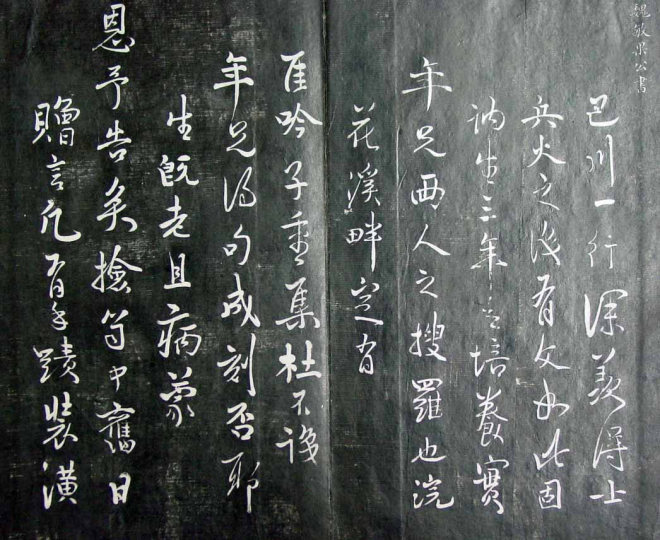 魏敏果公書
巴川一行深羡得士
兵火之後有文如此固
訥生三年之培養實
年兄西人之搜羅也浣
花溪畔定有
佳吟子重集杜不識
年兄得句成刻否耶
生既老且病蒙
恩予告矣撿笥中舊日
贈言凡有手蹟裝潢